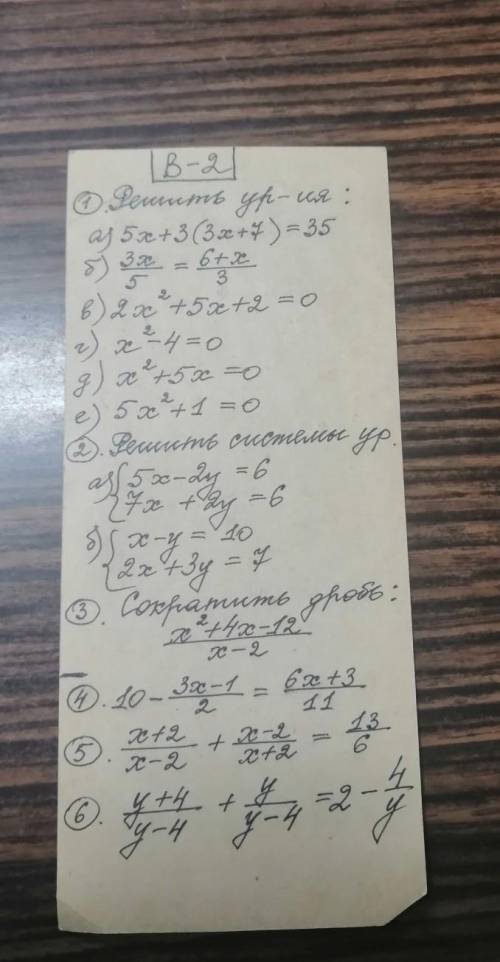 В-2
① Решить ур-ия:
а) 5x+3(3x+7)=35
б) 3x/5 = 6+x/3
в) 2x²+5x+2=0
г) x²-4=0
д) x²+5x=0
е) 5x²+1=0
②. Решить системы ур.
а) { 5x-2y=6
7x+2y=6
б) { x-y=10
2x+3y=7
③. Сократить дробь:
x²+4x-12/x-2
④. 10 - 3x-1/2 = 6x+3/11
⑤. x+2/x-2 + x-2/x+2 = 13/6
⑥. y+4/y-4 + y/y-4 = 2 - 4/y